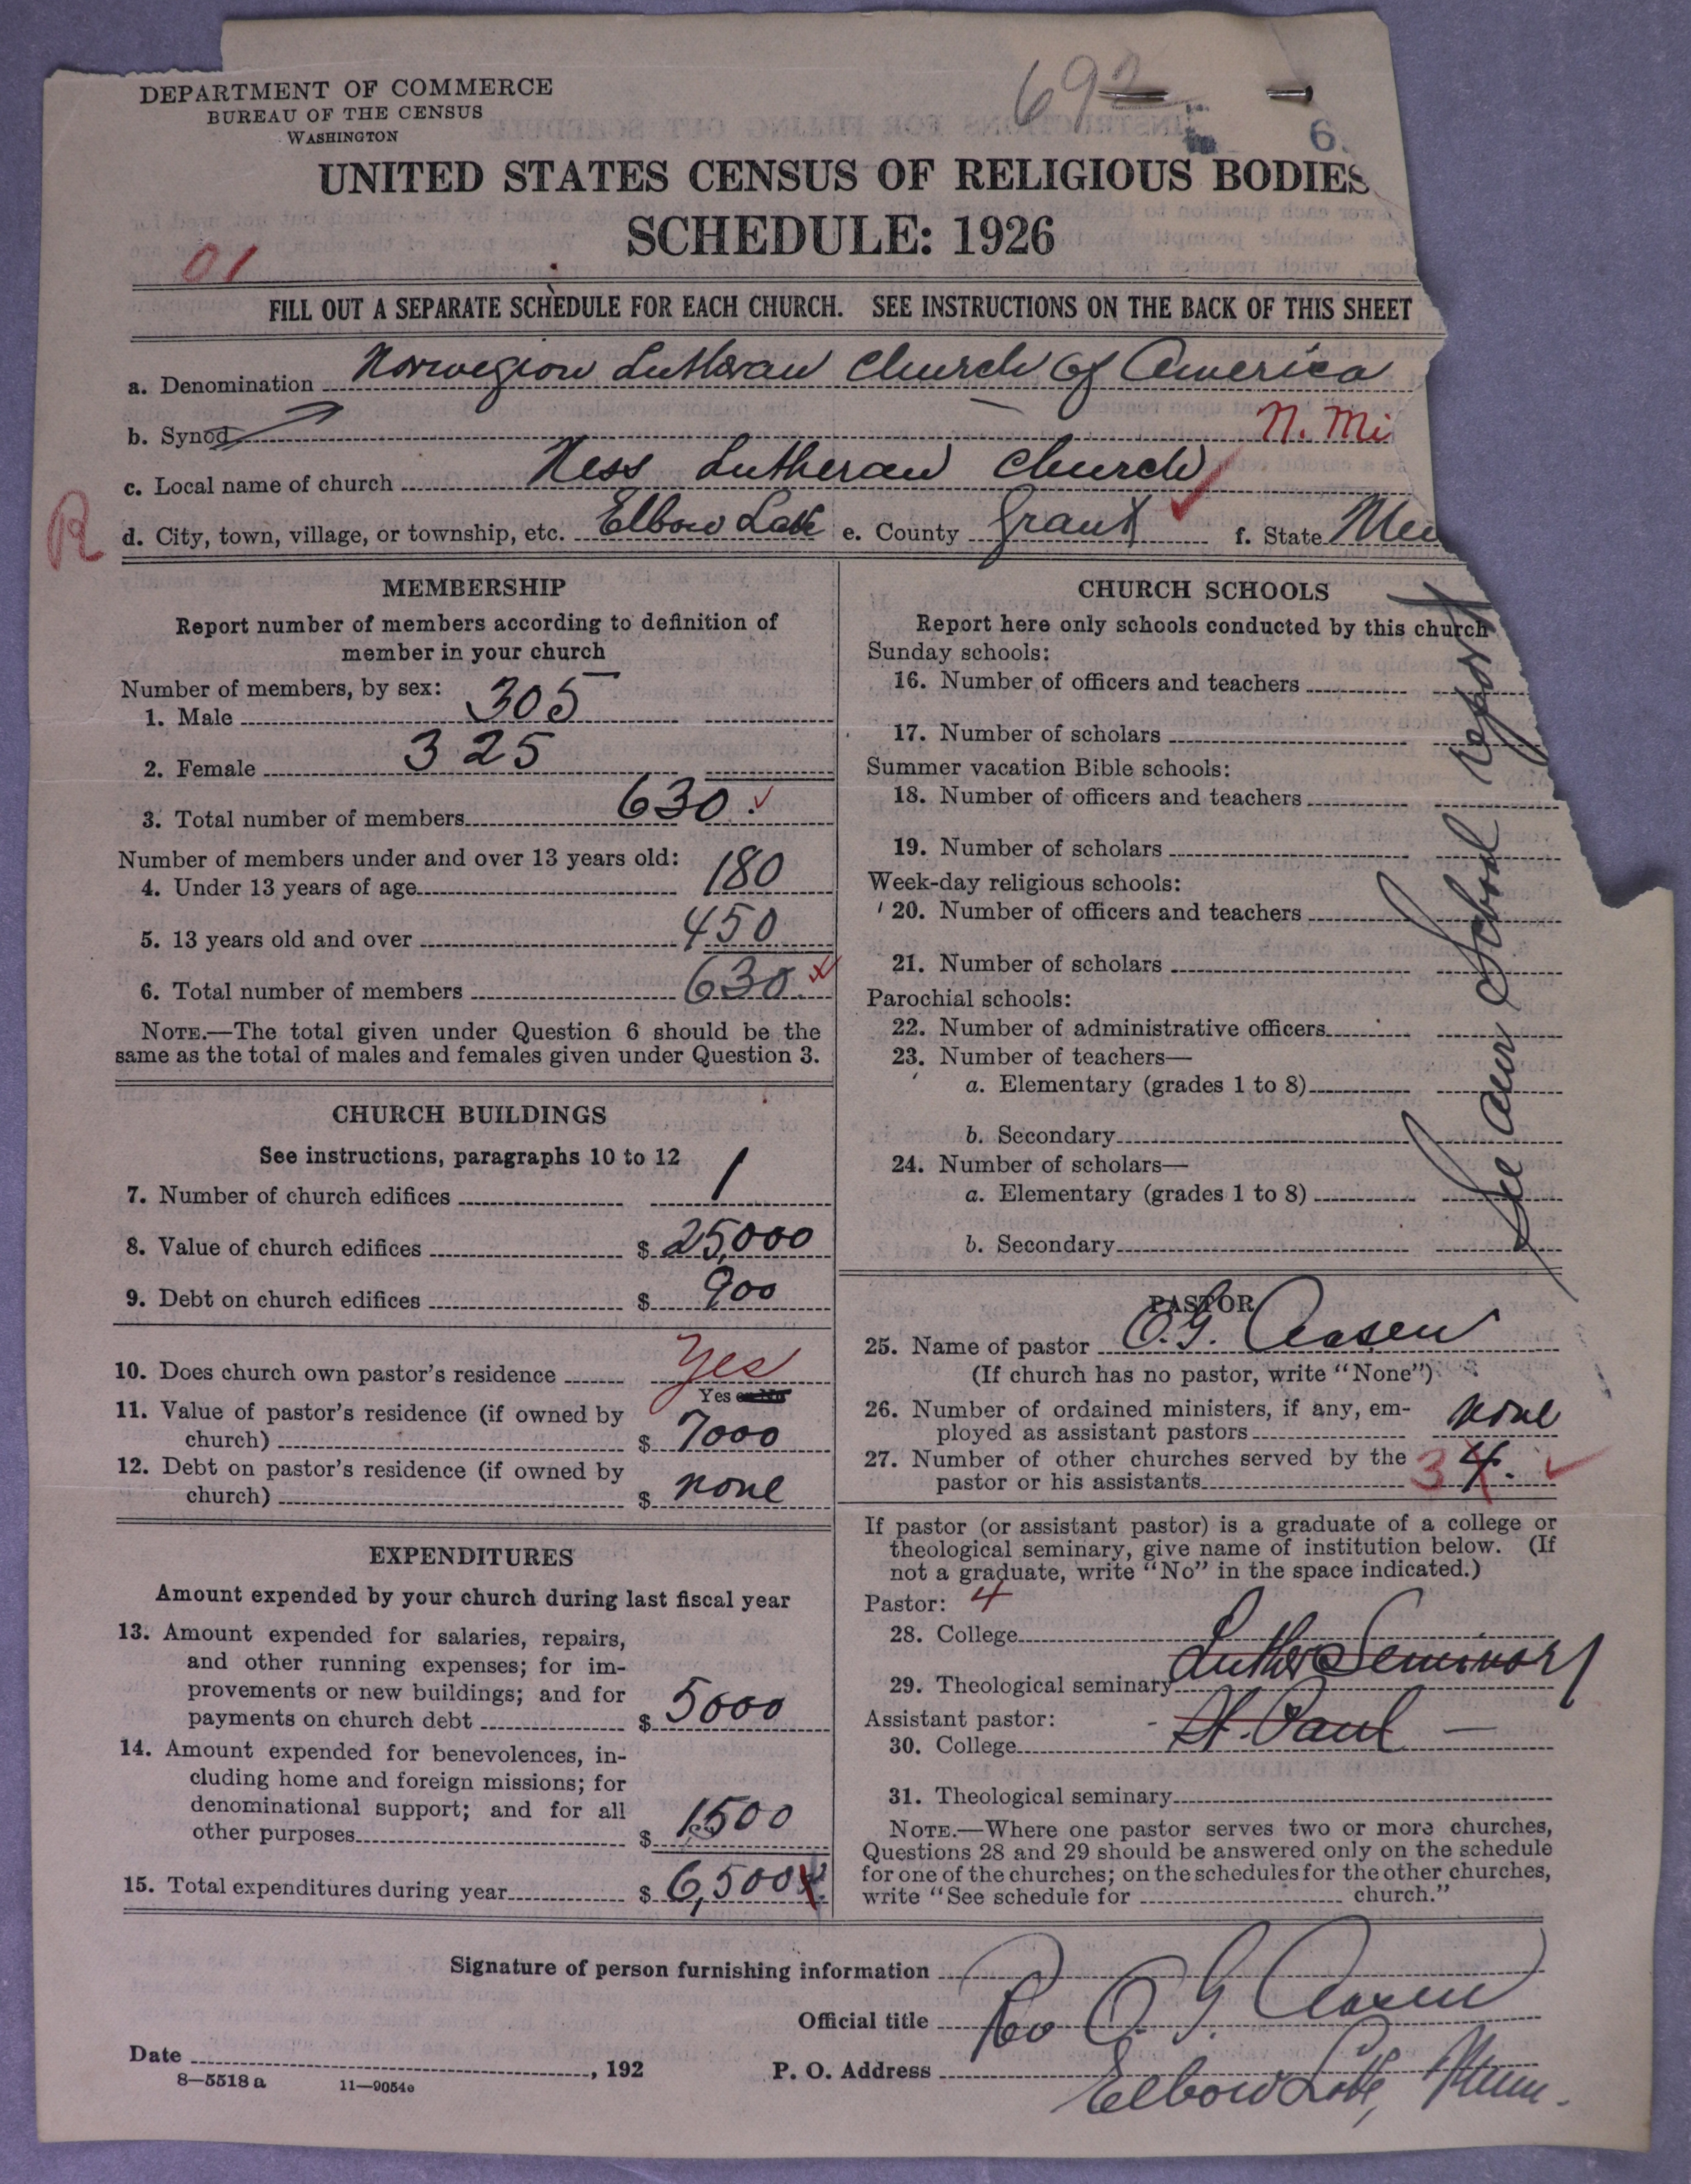 692
6.
DEPARTMENT OF COMMERCE
BUREAU OF THE CENSUS
WASHINGTON
UNITED STATES CENSUS OF RELIGIOUS BODIES
SCHEDULE: 1926
01
FILL OUT A SEPARATE SCHEDULE FOR EACH CHURCH. SEE INSTRUCTIONS ON THE BACK OF THIS SHEET
a. Denomination Norwegian Lutheran Church of America
b. Synod N. Mi
c. Local name of church Ness Lutheran Church
R
d. City, town, village, or township, etc. Elbow Lake e. County Grant f. State
MEMBERSHIP
Report number of members according to definition of
member in your church
Number of members, by sex:
1. Male 305
2. Female 325
3. Total number of members 630
Number of members under and over 13 years old:
4. Under 13 years of age 180
5. 13 years old and over 450
6. Total number of members 630
NOTE.—The total given under Question 6 should be the
same as the total of males and females given under Question 3.
CHURCH BUILDINGS
See instructions, paragraphs 10 to 12
7. Number of church edifices 1
8. Value of church edifices $ 25,000
9. Debt on church edifices $ 900
10. Does church own pastor's residence Yes
Yes or No
11. Value of pastor's residence (if owned by
church) $ 7000
12. Debt on pastor's residence (if owned by
church) $ none
EXPENDITURES
Amount expended by your church during last fiscal year
13. Amount expended for salaries, repairs,
and other running expenses; for im-
provements or new buildings; and for
payments on church debt $ 5000
14. Amount expended for benevolences, in-
cluding home and foreign missions; for
denominational support; and for all
other purposes $ 1500
15. Total expenditures during year $ 6,500
CHURCH SCHOOLS
Report here only schools conducted by this church
Sunday schools:
16. Number of officers and teachers
17. Number of scholars
Summer vacation Bible schools:
18. Number of officers and teachers
19. Number of scholars
Week-day religious schools:
20. Number of officers and teachers
21. Number of scholars
Parochial schools:
22. Number of administrative officers
23. Number of teachers—
a. Elementary (grades 1 to 8)
b. Secondary
24. Number of scholars—
a. Elementary (grades 1 to 8)
b. Secondary
See our School report
PASTOR
25. Name of pastor O. G. Aasen
(If church has no pastor, write "None")
26. Number of ordained ministers, if any, em-
ployed as assistant pastors none
27. Number of other churches served by the
pastor or his assistants 3 4.
If pastor (or assistant pastor) is a graduate of a college or
theological seminary, give name of institution below. (If
not a graduate, write "No" in the space indicated.)
Pastor: 4
28. College
29. Theological seminary Luther Seminary
Assistant pastor: St. Paul
30. College
31. Theological seminary
NOTE.—Where one pastor serves two or more churches,
Questions 28 and 29 should be answered only on the schedule
for one of the churches; on the schedules for the other churches,
write "See schedule for church."
Signature of person furnishing information
Official title Rev O. G. Aasen
Date , 192
P. O. Address Elbow Lake, Minn.
8—5518 a 11—9054c